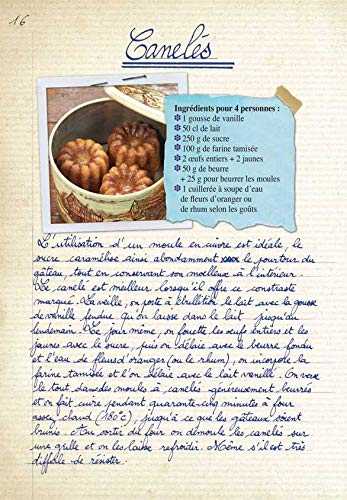 16
Canelés
Ingrédients pour 4 personnes :
1 gousse de vanille
50 cl de lait
250 g de sucre
100 g de farine tamisée
2 œufs entiers + 2 jaunes
50 g de beurre
+ 25 g pour beurrer les moules
1 cuillerée à soupe d'eau
de fleurs d'oranger ou
de rhum selon les goûts
L'utilisation d'un moule en cuivre est idéale, le
sucre caramélise ainsi abondamment le pourtour du
gâteau, tout en conservant son moelleux à l'intérieur.
Le canelé est meilleur lorsqu'il offre ce contraste
marqué. La veille, on porte à ébullition le lait avec la gousse
de vanille fendue qu'on laisse dans le lait jusqu'au
lendemain. Le jour même, on fouette les œufs entiers et les
jaunes avec le sucre, puis on délaie avec le beurre fondu
et l'eau de fleurs d'oranger (ou le rhum), on incorpore la
farine tamisée et l'on délaie avec le lait vanillé. On verse
le tout dans des moules à canelés généreusement beurrés
et on fait cuire pendant quarante-cinq minutes à four
assez chaud (180°c), jusqu'à ce que les gâteaux soient
brunis. Au sortir du four on démoule les canelés sur
une grille et on les laisse refroidir. Même s'il est très
difficile de résister.